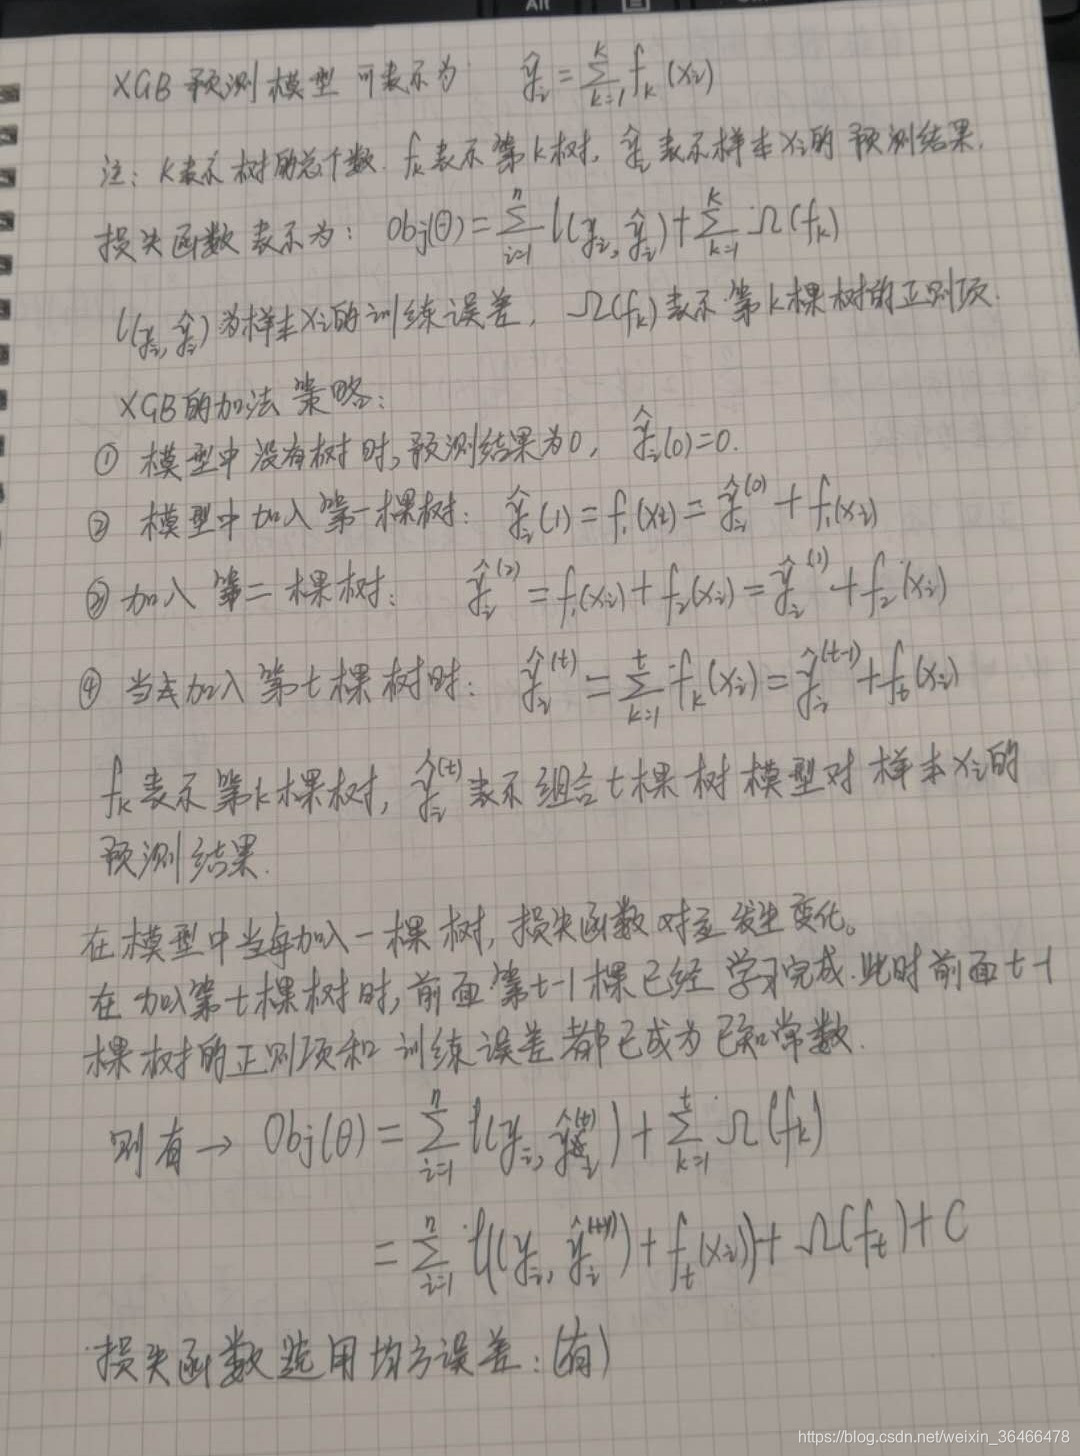 Alt
XGB 预测模型可表示为 ŷᵢ = Σₖ₌₁ᴷ fₖ(xᵢ)
注: K表示树的总个数. fₖ表示第k树, ŷᵢ表示样本xᵢ的预测结果.
损失函数表示为: Obj(θ) = Σᵢ₌₁ⁿ l(yᵢ, ŷᵢ) + Σₖ₌₁ᴷ Ω(fₖ)
l(yᵢ, ŷᵢ)为样本xᵢ的训练误差, Ω(fₖ)表示第k棵树的正则项.
XGB的加法策略:
① 模型中没有树时, 预测结果为0, ŷᵢ(0)=0.
② 模型中加入第一棵树: ŷᵢ(1) = f₁(xᵢ) = ŷᵢ⁽⁰⁾ + f₁(xᵢ)
③ 加入第二棵树: ŷᵢ⁽²⁾ = f₁(xᵢ) + f₂(xᵢ) = ŷᵢ⁽¹⁾ + f₂(xᵢ)
④ 当加入第t棵树时: ŷᵢ⁽ᵗ⁾ = Σₖ₌₁ᵗ fₖ(xᵢ) = ŷᵢ⁽ᵗ⁻¹⁾ + fₜ(xᵢ)
fₖ表示第k棵树, ŷᵢ⁽ᵗ⁾表示组合t棵树模型对样本xᵢ的
预测结果.
在模型中当每加入一棵树, 损失函数对应发生变化。
在加入第t棵树时, 前面第t-1棵已经学习完成. 此时前面t-1
棵树的正则项和训练误差都已成为已知常数.
则有→ Obj(θ) = Σᵢ₌₁ⁿ l(yᵢ, ŷᵢ⁽ᵗ⁾) + Σₖ₌₁ᵗ Ω(fₖ)
= Σᵢ₌₁ⁿ l((yᵢ, ŷᵢ⁽ᵗ⁻¹⁾) + fₜ(xᵢ)) + Ω(fₜ) + C
损失函数选用均方误差: (有)
https://blog.csdn.net/weixin_36466478